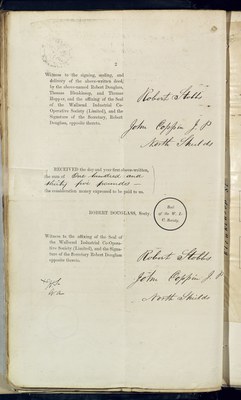 2
Witness to the signing, sealing, and
delivery of the above-written deed,
by the above-named Robert Douglass,
Thomas and Thomas
Hopper, and the affixing of the Seal
of the Wallsend Industrial Co-
Operative Society (Limited), and the
Signature of the Secretary, Robert
Douglass, opposite thereto.
Robert Stobbs
John Coppin J. P
North Shields
RECEIVED the day and year first above-written,
the sum of One hundred and
thirty five pounds —
the consideration money expressed to be paid to us.
ROBERT DOUGLASS, Secty.
Seal
of the W. I.
C. Society.
Witness to the affixing of the Seal of
the Wallsend Industrial Co-Opera-
tive Society (Limited), and the Signa-
ture of the Secretary Robert Douglass
opposite thereto.
Robert Stobbs
John Coppin J. P
North Shields